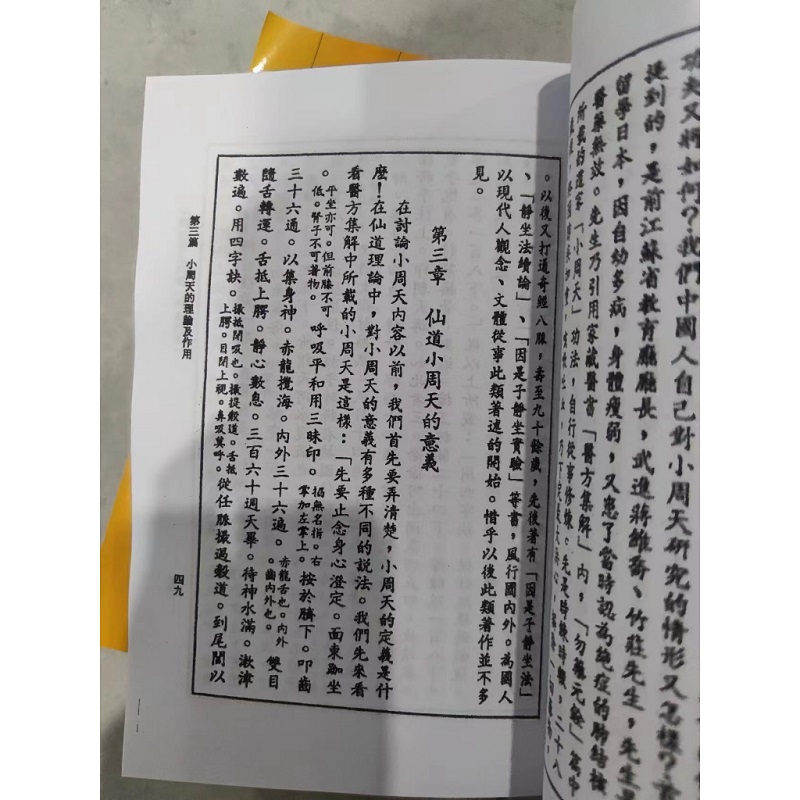 功夫又將如何?我們中國人自己對小周天研究的情形又怎樣?
提到的,是前江蘇省教育廳廳長,武進蔣維喬、竹莊先生,先生
留學日本,因自幼多病,身體瘦弱,又患了當時認為絕症的肺結核
醫藥無效。先生乃引用家藏醫書「醫方集解」內,「勿藥元詮」篇中
所載的道家「小周天」功法,自行從事修煉。
。以後又打通奇經八脈,壽至九十餘歲,先後著有「因是子靜坐法」
、「靜坐法續論」、「因是子靜坐實驗」等書,風行國內外。為國人
以現代人觀念、文體從事此類著述的開始。惜乎以後此類著作並不多
見。
第三章 仙道小周天的意義
在討論小周天內容以前,我們首先要弄清楚,小周天的定義是什
麼!在仙道理論中,對小周天的意義有多種不同的說法。我們先來看
看醫方集解中所載的小周天是這樣:「先要止念身心澄定。面東跏坐
。平坐亦可。但前膝不可低。腎子不可著物。呼吸平和用三昧印。掐無名指。右掌加左掌上。按於臍下。叩齒
三十六通。以集身神。赤龍攪海。內外三十六遍。赤龍舌也。內外齒內外也。雙目
隨舌轉運。舌抵上腭。靜心數息。三百六十週天畢。待神水滿。漱津
數遍。用四字訣。撮抵閉吸也。撮提穀道。舌抵上腭。目閉上視。鼻吸莫呼。從任脈撮過穀道。到尾閭以
第三篇 小周天的理論及作用
四九